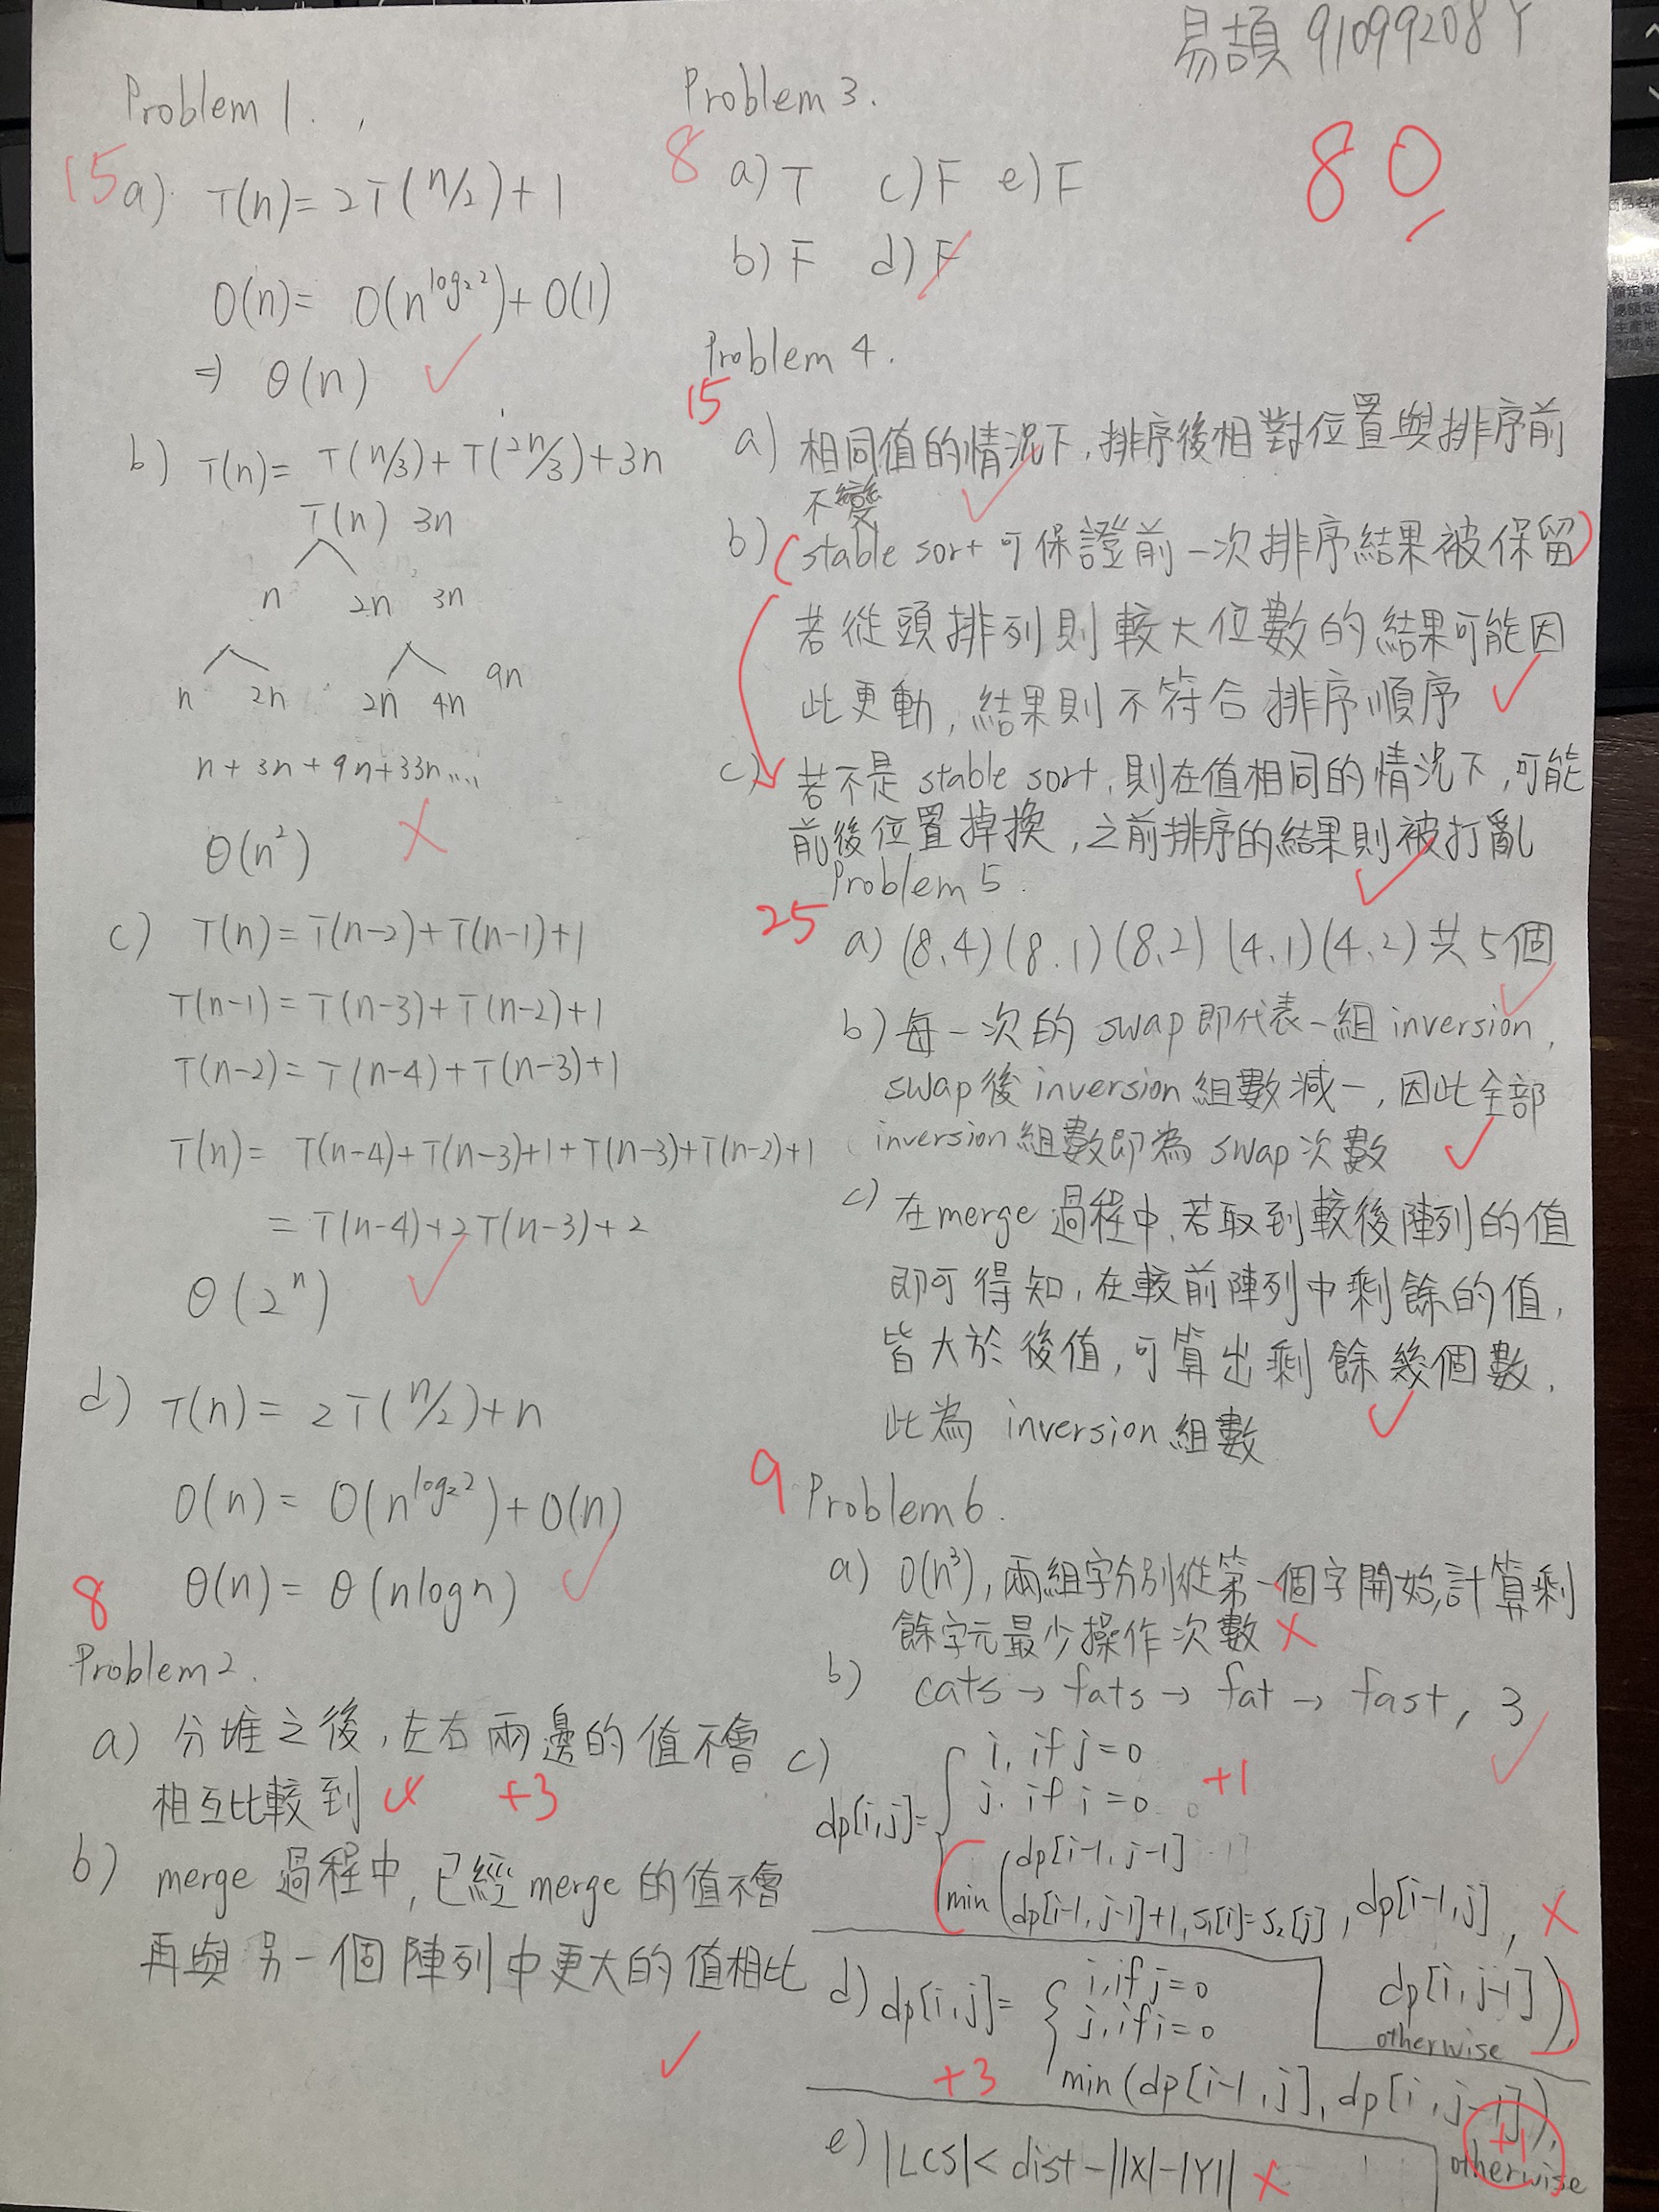 易頡 91099208Y
80
Problem 1.
15
a) T(n) = 2T(n/2) + 1
O(n) = O(n^log₂2) + O(1)
⇒ θ(n)
b) T(n) = T(n/3) + T(2n/3) + 3n
T(n) 3n
n 2n 3n
n 2n 2n 4n 9n
n + 3n + 9n + 33n....
θ(n²)
c) T(n) = T(n-2) + T(n-1) + 1
T(n-1) = T(n-3) + T(n-2) + 1
T(n-2) = T(n-4) + T(n-3) + 1
T(n) = T(n-4) + T(n-3) + 1 + T(n-3) + T(n-2) + 1
= T(n-4) + 2T(n-3) + 2
θ(2ⁿ)
d) T(n) = 2T(n/2) + n
O(n) = O(n^log₂2) + O(n)
θ(n) = θ(nlogn)
8
Problem 2.
a) 分堆之後,左右兩邊的值不會
相互比較到 +3
b) merge 過程中,已經 merge 的值不會
再與另一個陣列中更大的值相比
Problem 3.
8
a) T c) F e) F
b) F d) F
Problem 4.
15
a) 相同值的情況下,排序後相對位置與排序前
不變
b) (stable sort 可保證前一次排序結果被保留)
若從頭排列則較大位數的結果可能因
此更動,結果則不符合排序順序
c) 若不是 stable sort,則在值相同的情況下,可能
前後位置掉換,之前排序的結果則被打亂
Problem 5.
25
a) (8、4) (8、1) (8、2) (4、1) (4、2) 共5個
b) 每一次的 swap 即代表一組 inversion,
swap 後 inversion 組數減一,因此全部
inversion 組數即為 swap 次數
c) 在 merge 過程中,若取到較後陣列的值
即可得知,在較前陣列中剩餘的值,
皆大於後值,可算出剩餘幾個數,
此為 inversion 組數
9
Problem 6.
a) O(n³), 兩組字分別從第一個字開始,計算剩
餘字元最少操作次數
b) cats → fats → fat → fast, 3
c) dp[i,j] = { i, if j=0
j. if i=0 +1
min ( dp[i-1, j-1]
dp[i-1, j-1]+1, S₁[i]=S₂[j], dp[i-1,j],
dp[i, j-1] ),
otherwise
d) dp[i,j] = { i, if j=0
j, if i=0
+3 min (dp[i-1,j], dp[i,j-1]),
+1
otherwise
e) |LCS| < dist - ||X|-|Y||